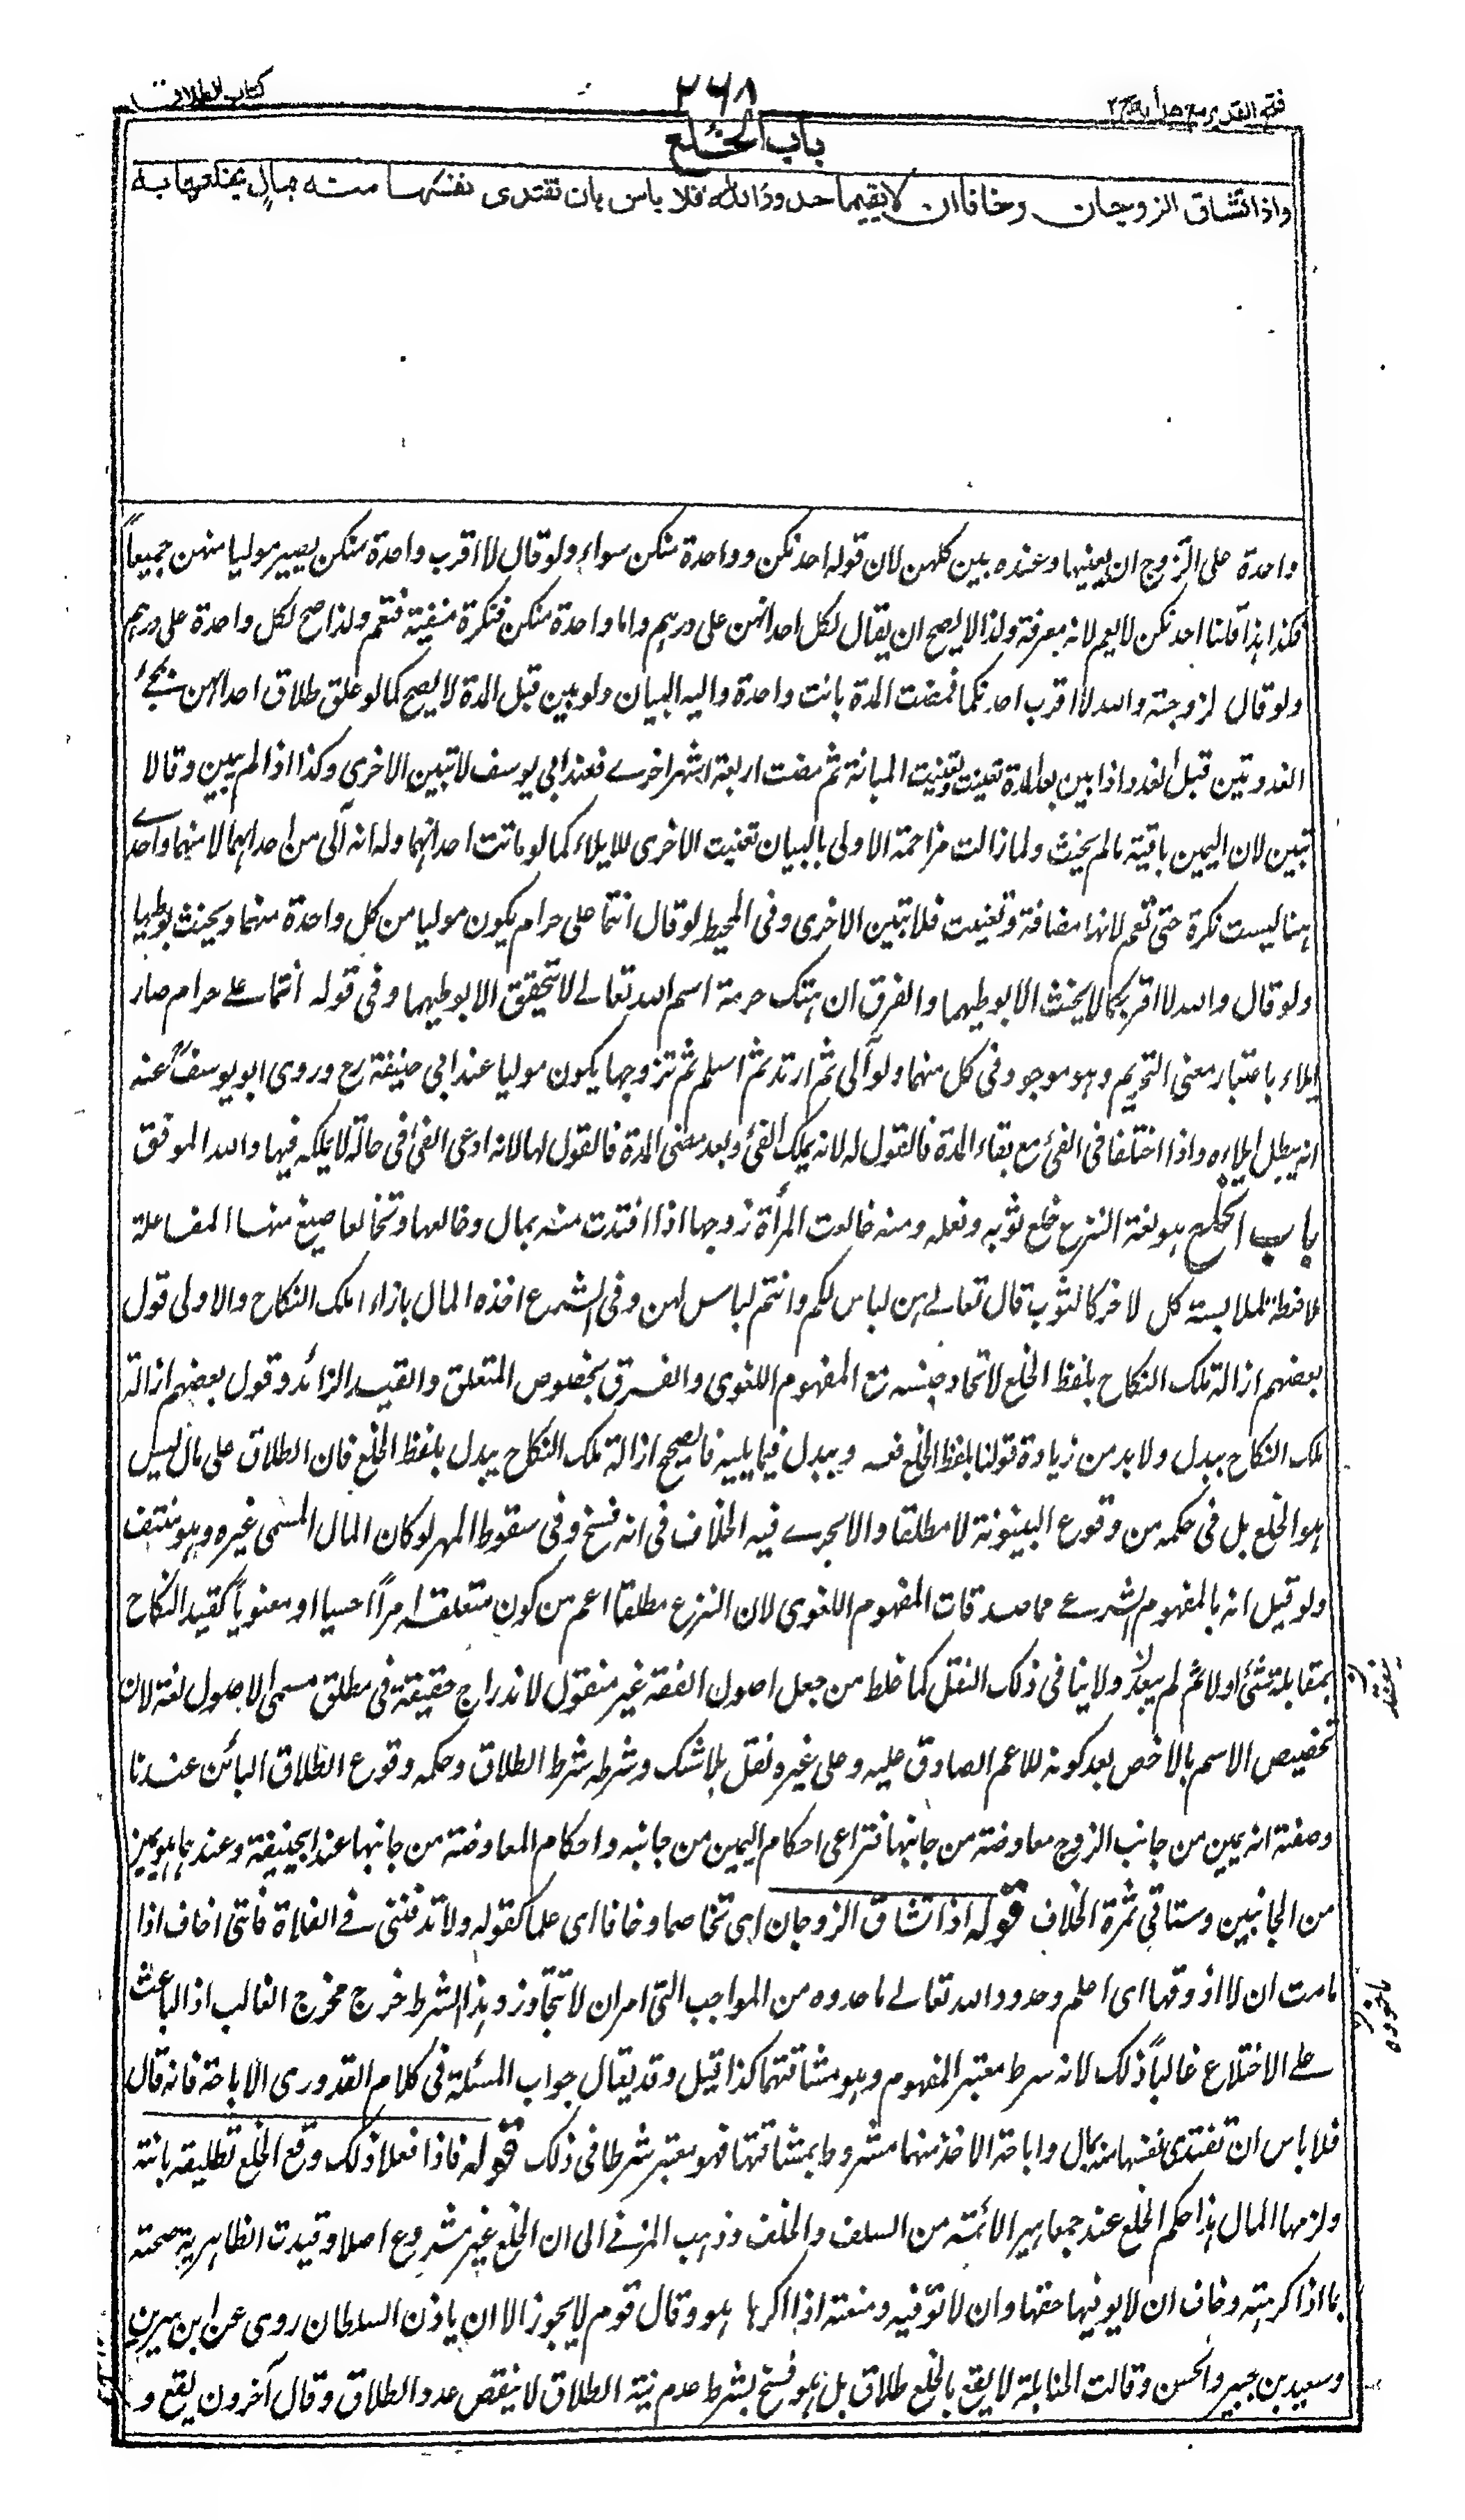 فتح القدير مع هداية ج ٢
٢٦٨
كتاب الطلاق
باب الخلع
واذا تشاق الزوجان وخافا ان لا يقيما حدود الله فلا باس بان تفتدى نفسها منه بمال يخلعها به
واحدة على الزوج ان يعينها وعنده بين كلهن لان قوله احدنكن وواحدة منكن سواء ولو قال لا اقرب واحدة منكن يصير موليا منهن جميعاً
فكذا هذا قلنا احدنكن لا يعم لانه معرفة ولذا لا يصح ان يقال لكل احدانهن على درهم واما واحدة منكن فنكرة منفية فتعم ولذا صح لكل واحدة على درهم
ولو قال لزوجته والله لا اقرب احدنكما فمضت المدة بانت واحدة واليه البيان ولو بين قبل المدة لا يصح كما لو علق طلاق احدٰهن بمجئ
الغد وتبين قبل الغد واذا بين بعد المدة تعينت وتعينت المبانة ثم مضت اربعة اشهر اخرے فعند ابي يوسف لا تبين الاخرى وكذا اذا لم يبين وقالا
تبين لان اليمين باقية ما لم يحنث ولما زالت مزاحمة الاولى بالبيان تعينت الاخرى للايلاء كما لو ماتت احدٰنهما وله انه آلى من احدٰهما لا منهما واحدے
هنا ليست نكرة حتى تعم لانها مضافة وتعينت فلا تبين الاخرى وفى المحيط لو قال انتما على حرام يكون موليا من كل واحدة منهما ويحنث بوطيها
ولو قال والله لا اقربكما لا يحنث الا بوطيهما والفرق ان هتك حرمة اسم الله تعالے لا تتحقق الا بوطيهما وفى قوله انتما علے حرام صار
ايلاء باعتبار معنى التحريم وهو موجود فى كل منهما ولو آلى ثم ارتد ثم اسلم ثم تزوجها يكون موليا عند ابي حنيفة رح وروى ابو يوسف عنه
انه يبطل ايلاءه واذا اختلفا فى الفئ مع بقاء المدة فالقول له لانه يملك الفئ وبعد مضى المدة فالقول لها لانه ادعى الفئ فى حالة لا يملكه فيها والله الموفق
باب الخلع هو لغة النزع خلع ثوبه ونعله ومنه خالعت المرأة زوجها اذا افتدت منه بمال وخالعها وتخالعا صيغ منها المفاعلة
ملاحظة لملابسة كل لاخر كالثوب قال تعالے هن لباس لكم وانتم لباس لهن وفى الشرع اخذه المال بازاء ملك النكاح والاولى قول
بعضهم ازالة ملك النكاح بلفظ الخلع لاتحاد جنسه مع المفهوم اللغوى والفرق بخصوص المتعلق والقيد الزائد وقول بعضهم ازالة
ملك النكاح ببدل ولا بد من زيادة قولنا بلفظ الخلع فيه وببدل فيما يليه فالصحيح ازالة ملك النكاح ببدل بلفظ الخلع فان الطلاق على مال ليس
هو الخلع بل فى حكمه من وقوع البينونة لا مطلقا والا لجرے فيه الخلاف فى انه فسخ وفى سقوط المهر لو كان المال المسمى غيره وهو منتف
ولو قيل انه بالمفهوم الشرعے مما صدقات المفهوم اللغوى لان النزع مطلقا اعم من كون متعلقه امراً حسيا او معنوياً كقيد النكاح
بمقابلة شئ او لا ثم لم يبعد ولا ينافى ذلك النقل كما غلط من جعل اصول الفقه غير منقول لاندراج حقيقة فى مطلق مسمى الاصول لغة لان
تخصيص الاسم بالاخص بعد كونه للاعم الصادق عليه وعلى غيره نقل بلا شك وشرطه شرط الطلاق وحكمه وقوع الطلاق البائن عندنا
وصفته انه يمين من جانب الزوج معاوضة من جانبها فتراعى احكام اليمين من جانبه واحكام المعاوضة من جانبها عند ابيحنيفة وعندهما هو يمين
من الجانبين وستاتي ثمرة الخلاف قوله اذا تشاق الزوجان اى تخاصما وخافا اى علما كقوله ولا تدفننى فے الفلاة فاننى اخاف اذا
مامت ان لا اذوقها اى اعلم وحدود الله تعالے ما حدوه من المواجب التى امر ان لا تتجاوز وهذا الشرط خرج مخرج الغالب اذ الباعث
علے الاختلاع غالباً ذلك لانه شرط معتبر المفهوم وهو مشاقتهما كذا قيل وقد يقال جواب المسئلة فى كلام القدورى الاباحة فانه قال
فلا باس ان تفتدى نفسها منه بمال واباحة الاخذ منها مشروط بمشاقتها فهو معتبر شرطا فى ذلك قوله فاذا فعلا ذلك وقع الخلع تطليقة بائنة
ولزمها المال هذا حكم الخلع عند جماهير الائمة من السلف والخلف وذهب المزنے الى ان الخلع غير مشروع اصلا وقيدت الظاهرية صحته
بما اذا كرهته وخاف ان لا يوفيها حقها وان لا توفيه ومنعته اذا اكرها هو وقال قوم لا يجوز الا ان ياذن السلطان روى عن ابن سيرين
وسعيد بن جبير والحسن وقالت الحنابلة لا يقع بالخلع طلاق بل هو فسخ بشرط عدم نية الطلاق لا ينقص عدد الطلاق وقال آخرون يقع و